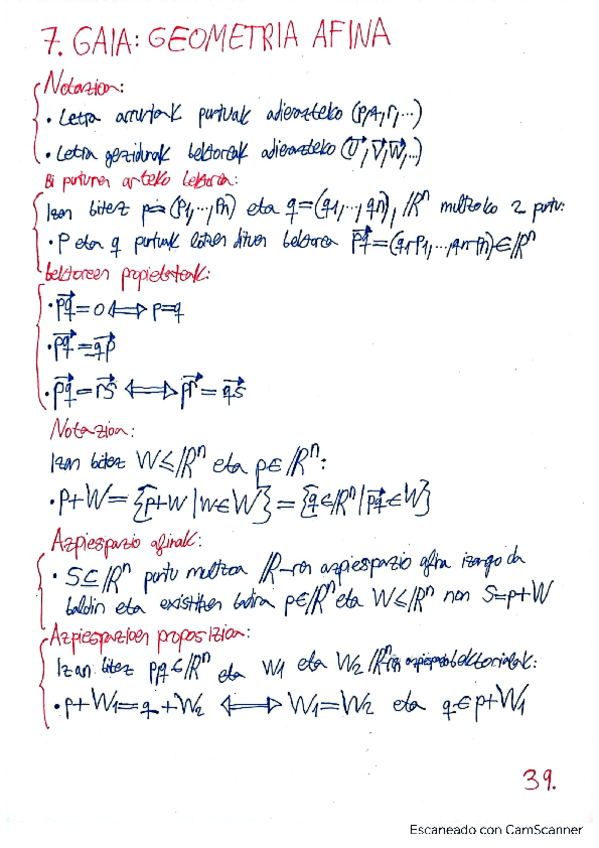 7. GAIA: GEOMETRIA AFINA
Notazion:
• Letra arruntak puntuak adierazteko (p,q,r,...)
• Letra gezidunak bektoreak adierazteko (u⃗,v⃗,w⃗,...)
Bi punturen arteko bektorea:
Izan bitez p=(p1,...,pn) eta q=(q1,...,qn), ℝⁿ multzoko 2 puntu:
• P eta q puntuak lotzen dituen bektorea pq⃗=(q1-p1,...,qn-pn)∈ℝⁿ
bektoreen propietateak:
• pq⃗=0 ⟺ p=q
• pq⃗=qp⃗
• pq⃗=rs⃗ ⟺ pr⃗=qs⃗
Notazioa:
Izan bitez W≤ℝⁿ eta p∈ℝⁿ:
• p+W={p+w | w∈W}={q∈ℝⁿ | pq⃗∈W}
Azpiespazio afinak:
• S⊆ℝⁿ puntu multzoa ℝ-ren azpiespazio afina izango da
baldin eta existitzen badira p∈ℝⁿ eta W≤ℝⁿ non S=p+W
Azpiespazioen proposizioa:
Izan bitez p,q∈ℝⁿ eta W1 eta W2 ℝⁿ-ren azpiespazio bektorialak:
• p+W1=q+W2 ⟺ W1=W2 eta q∈p+W1
39.
Escaneado con CamScanner